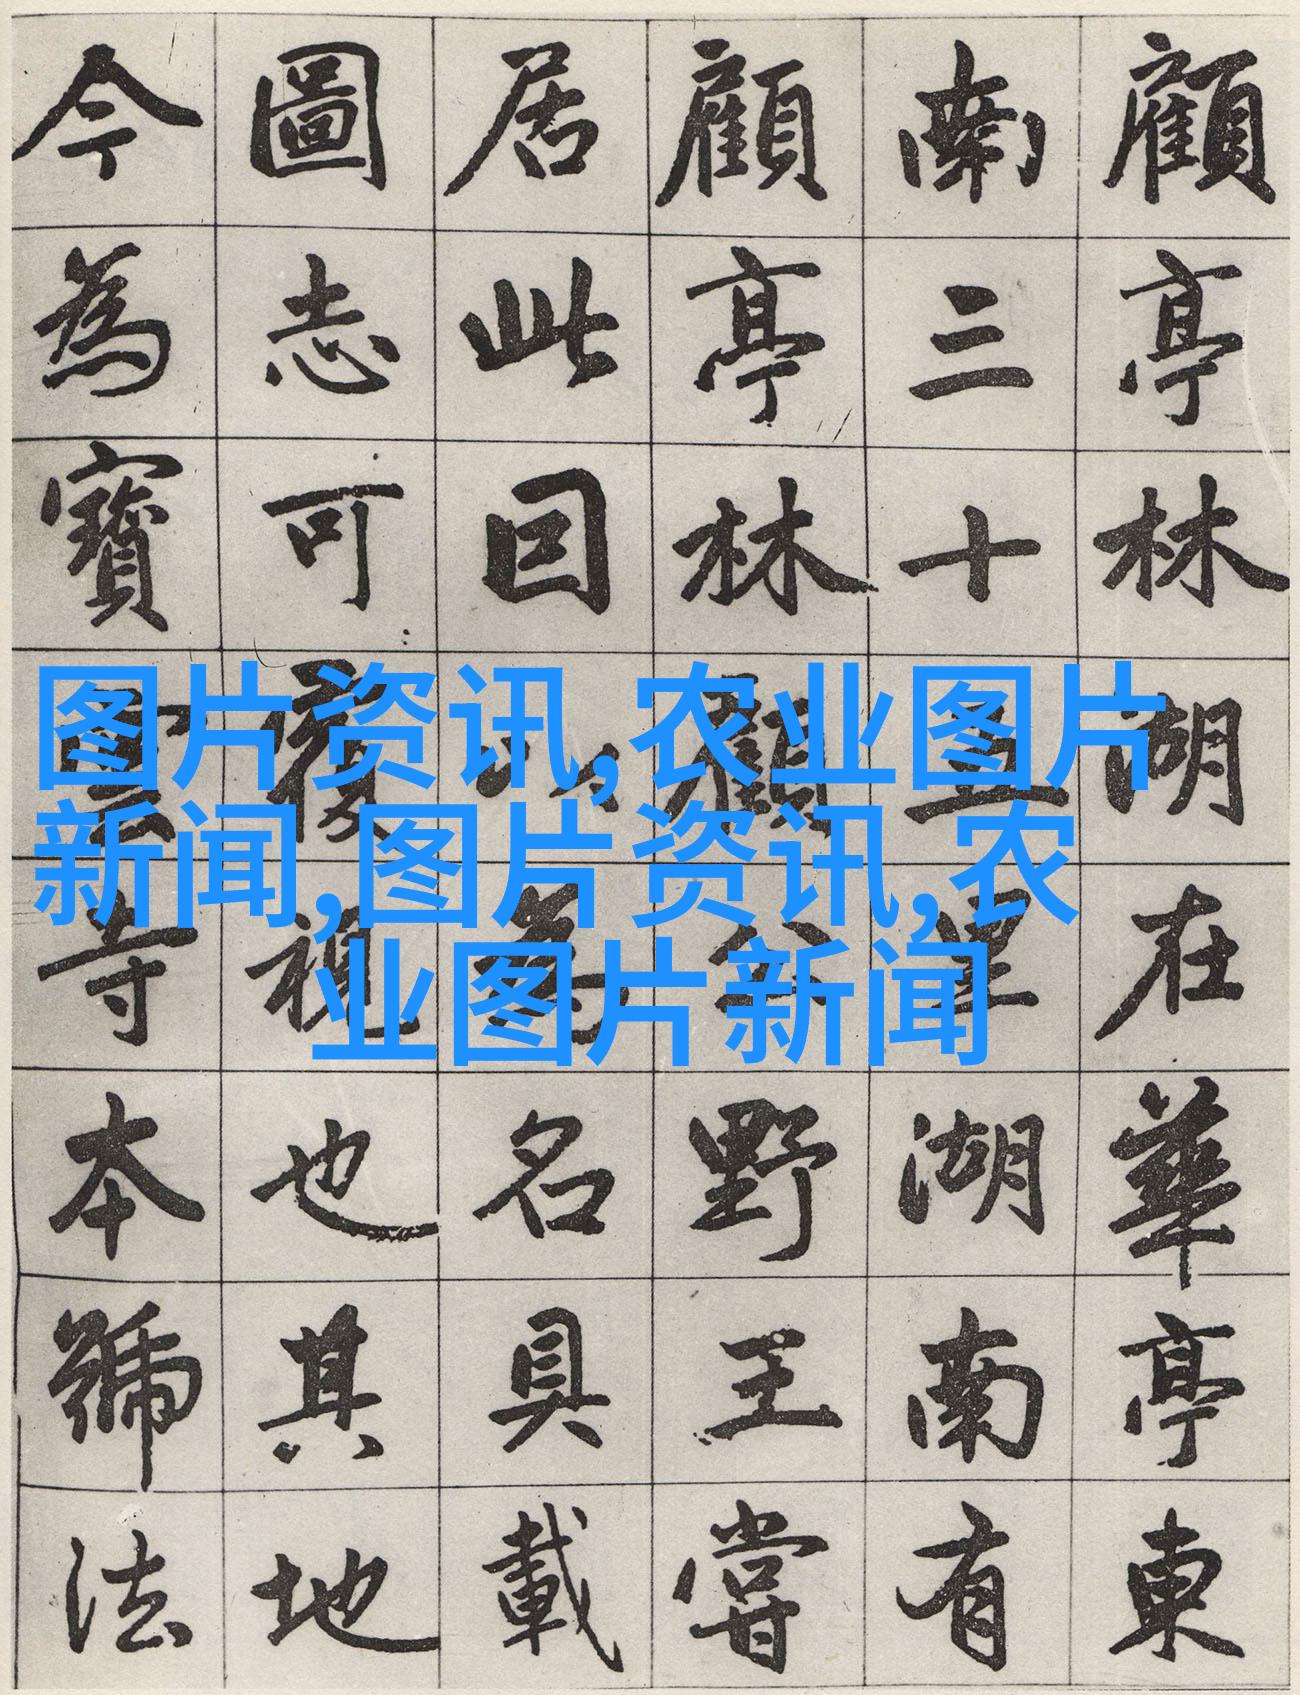 顧亭林湖在華亭東
南三十五里湖南有
顧亭林顧公野王嘗
居此因以為名具載
圖志可覆視也其地
今為寶雲寺本號法
图片资讯,农业图片
新闻,图片资讯,农
业图片新闻